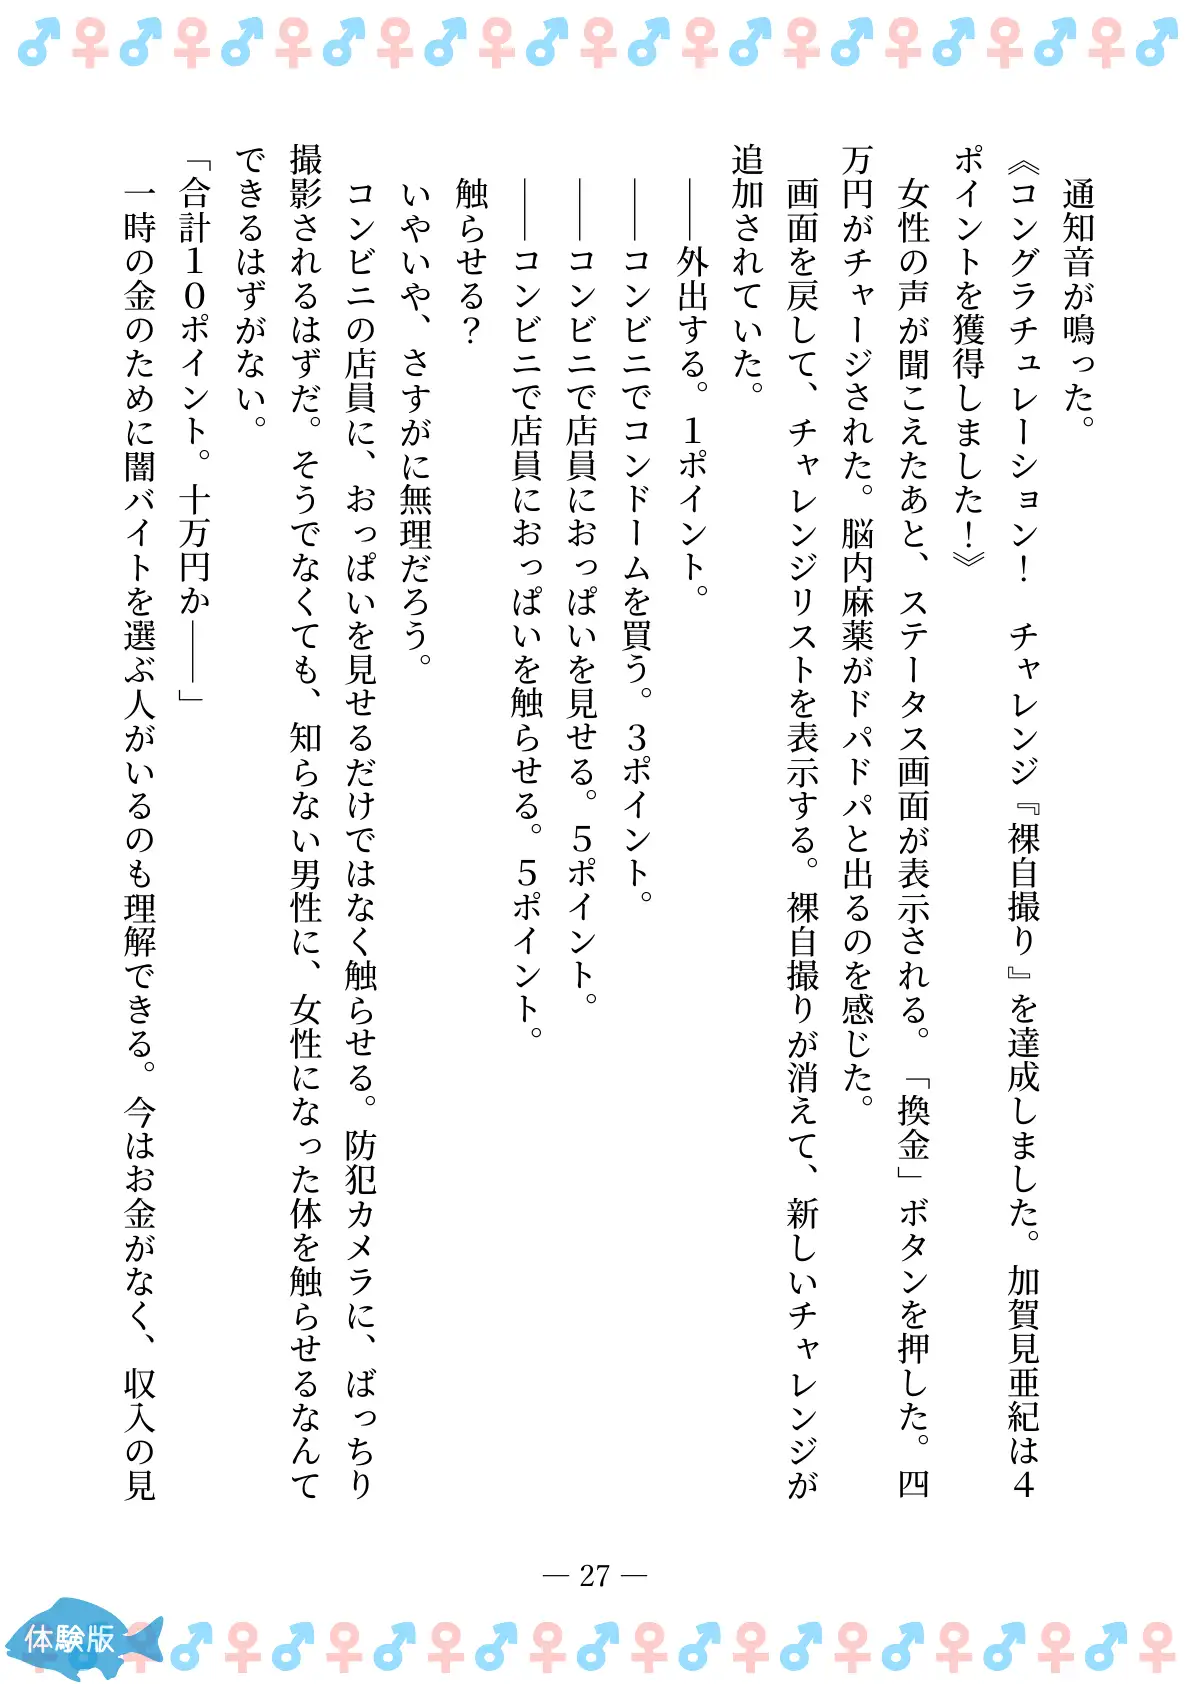 通知音が鳴った。
《コングラチュレーション！　チャレンジ『裸自撮り』を達成しました。加賀見亜紀は４
ポイントを獲得しました！》
　女性の声が聞こえたあと、ステータス画面が表示される。「換金」ボタンを押した。四
万円がチャージされた。脳内麻薬がドパドパと出るのを感じた。
　画面を戻して、チャレンジリストを表示する。裸自撮りが消えて、新しいチャレンジが
追加されていた。
　――外出する。１ポイント。
　――コンビニでコンドームを買う。３ポイント。
　――コンビニで店員におっぱいを見せる。５ポイント。
　――コンビニで店員におっぱいを触らせる。５ポイント。
　触らせる？
　いやいや、さすがに無理だろう。
　コンビニの店員に、おっぱいを見せるだけではなく触らせる。防犯カメラに、ばっちり
撮影されるはずだ。そうでなくても、知らない男性に、女性になった体を触らせるなんて
できるはずがない。
「合計１０ポイント。十万円か――」
　一時の金のために闇バイトを選ぶ人がいるのも理解できる。今はお金がなく、収入の見
― 27 ―
体験版